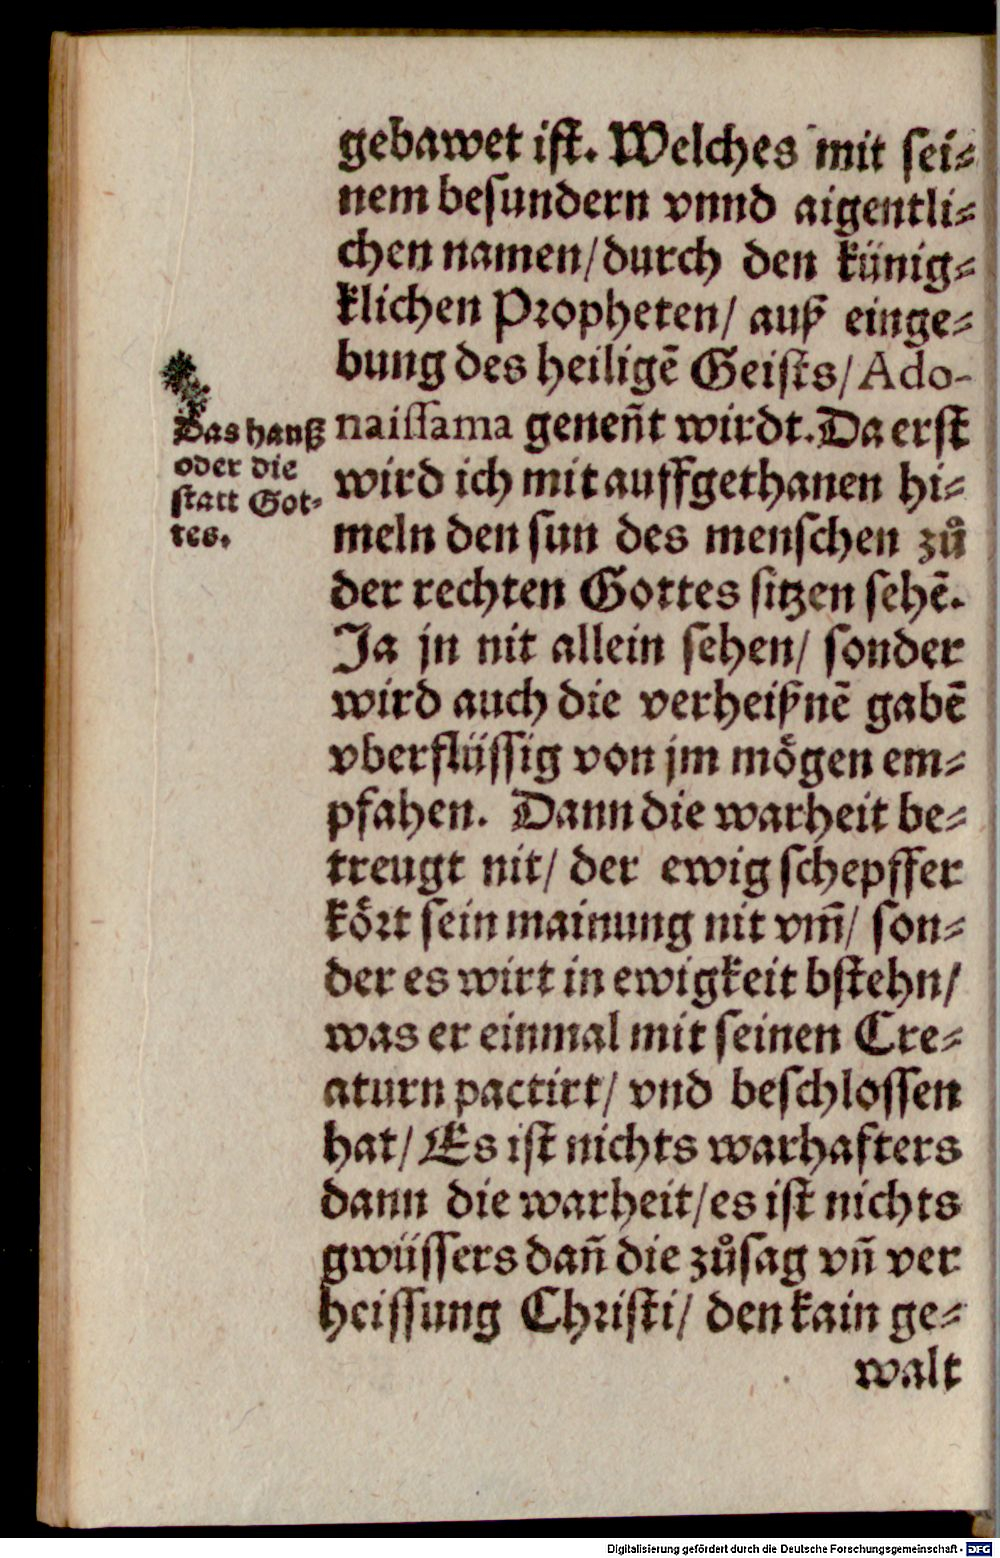 gebawet iſt. Welches mit ſei⸗
nem beſundern vnnd aigentli⸗
chen namen/durch den künig⸗
klichen Propheten/ auß einge⸗
bung des heiligē Geiſts/Ado-
naiſſama geneñt wirdt. Da erſt
wird ich mit auffgethanen hi⸗
meln den ſun des menſchen zů
der rechten Gottes ſitzen ſehē.
Ja jn nit allein ſehen/ ſonder
wird auch die verheißnē gabē
vberflüſſig von jm mögen em⸗
pfahen. Dann die warheit be⸗
treugt nit/ der ewig ſchepffer
kört ſein mainung nit vm̃/ ſon⸗
der es wirt in ewigkeit bſtehn/
was er einmal mit ſeinen Cre⸗
aturn pactirt/ vnd beſchloſſen
hat/ Es iſt nichts warhafters
dann die warheit/es iſt nichts
gwüſſers dañ die zůſag vñ ver
heiſſung Chriſti/ den kain ge⸗
walt
Das hauß
oder die
ſtatt Got⸗
tes.
Digitalisierung gefördert durch die Deutsche Forschungsgemeinschaft - DFG